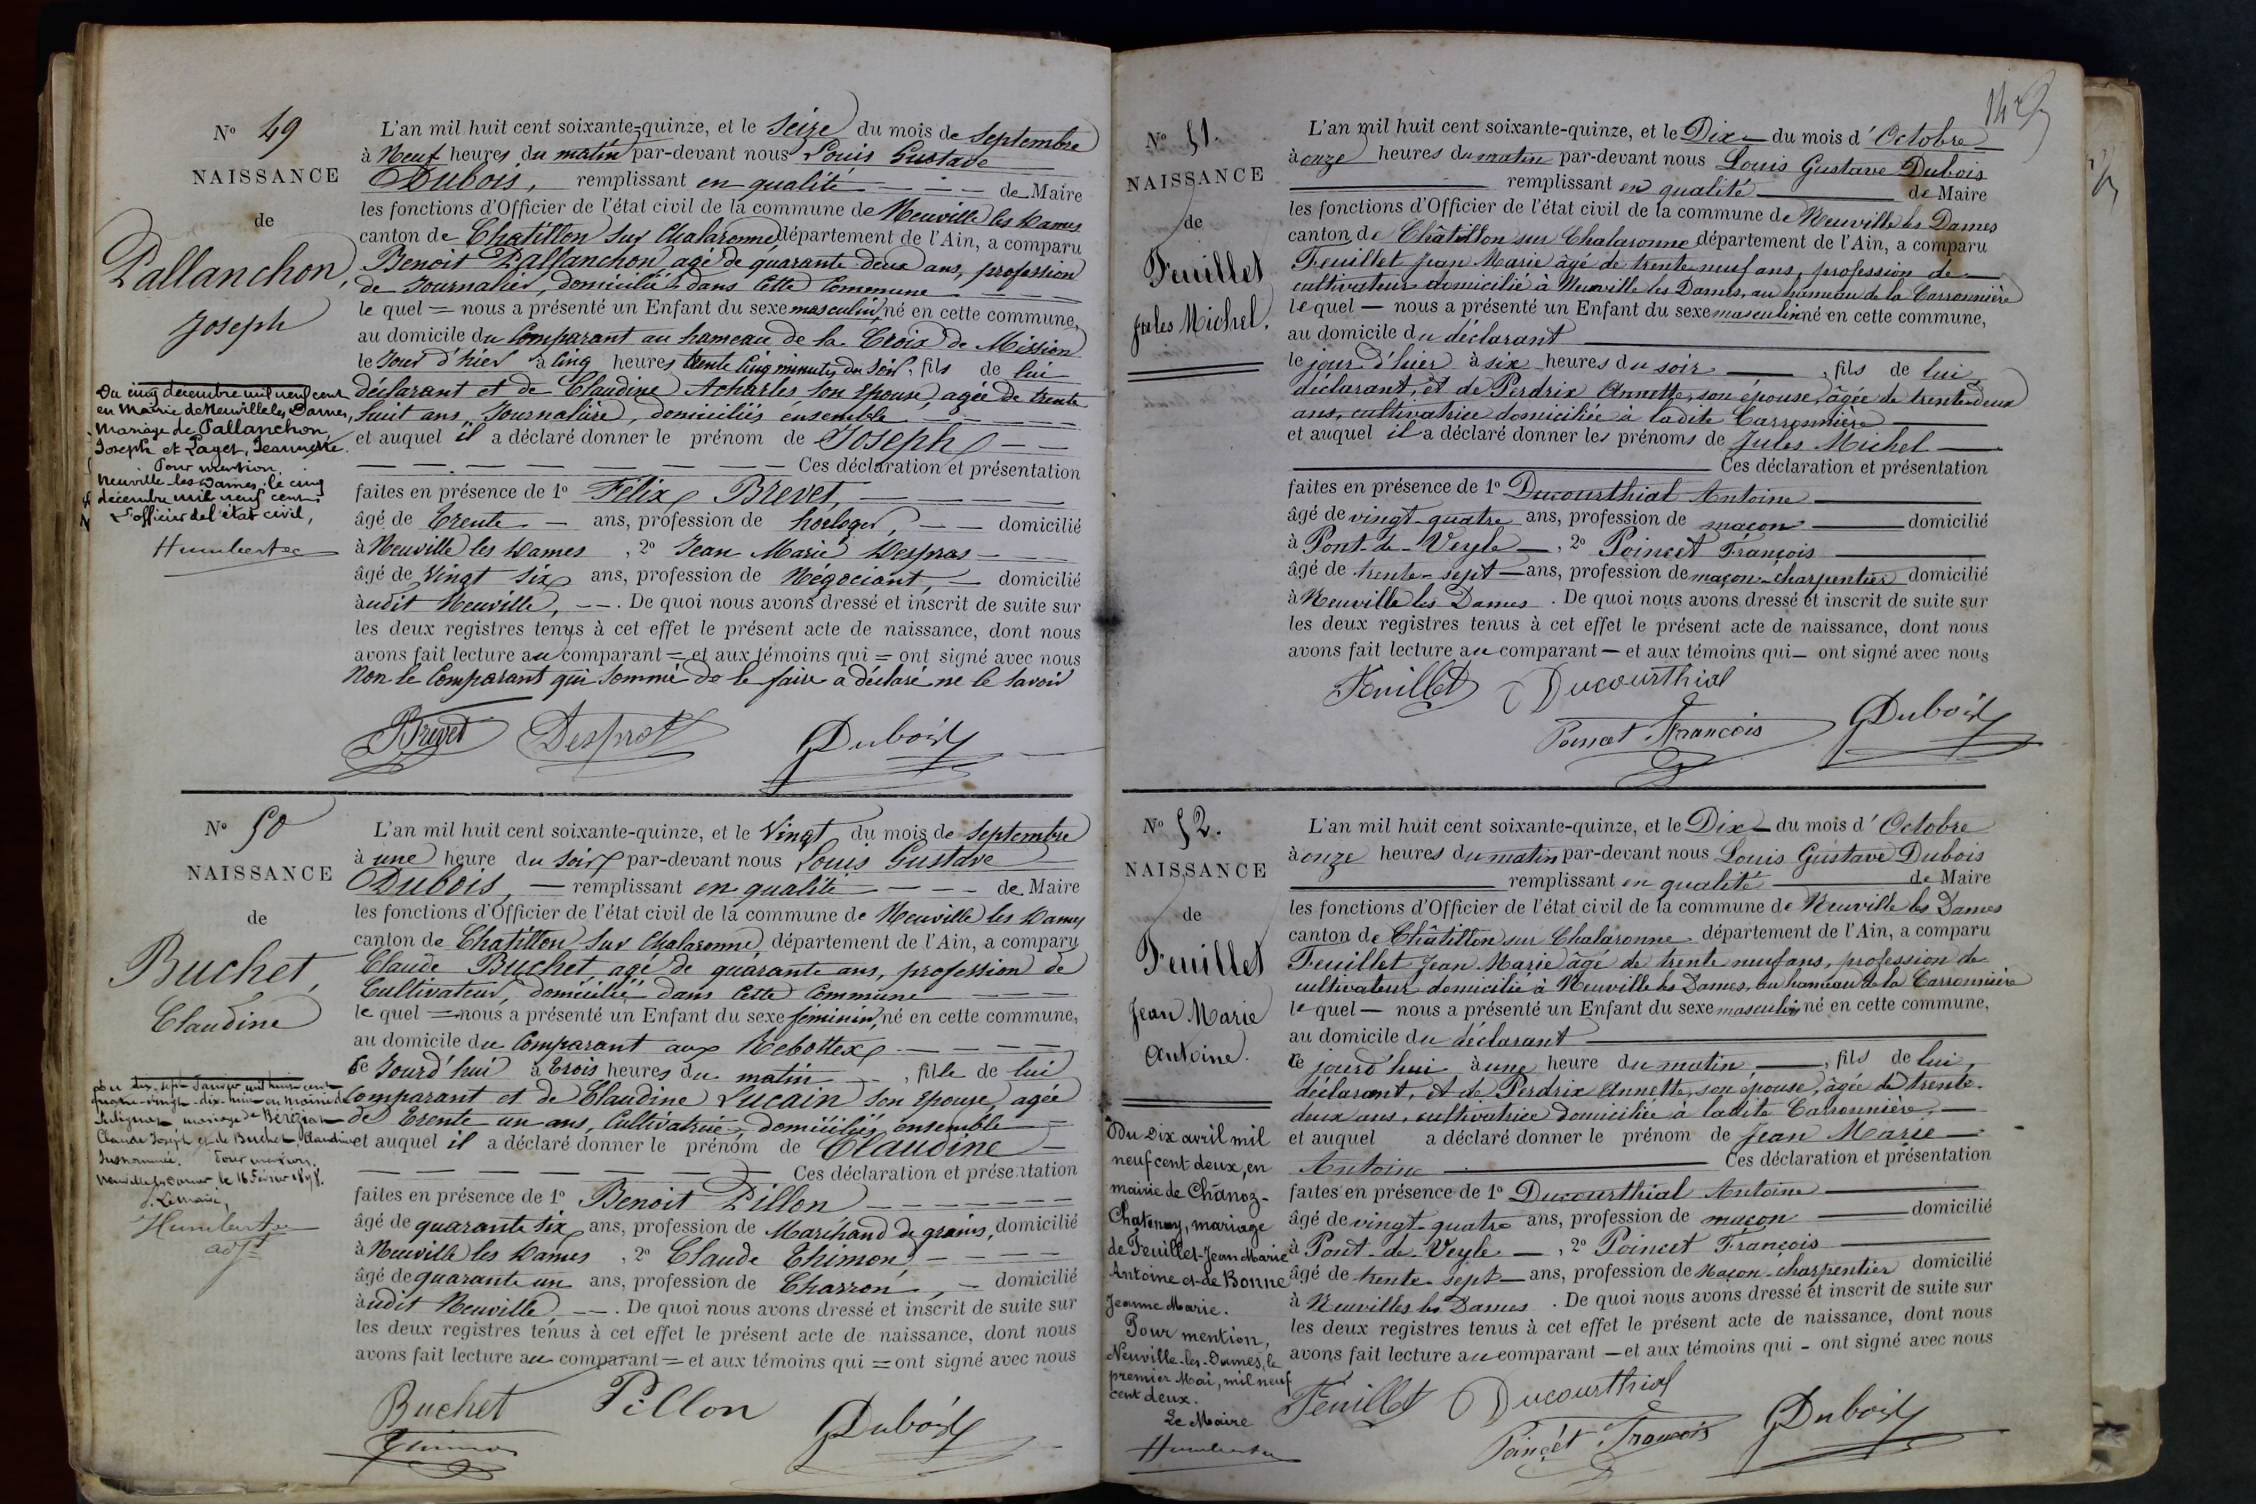 Nº 49
NAISSANCE
de
Pallanchon,
Joseph
Du cinq décembre mil neuf cent
en Mairie de Neuville les Dames,
Mariage de Pallanchon
Joseph et Pager, Jeannette.
Pour mention,
Neuville-les-Dames, le cinq
décembre mil neuf cent.
L'officier de l'état civil,
Humbert
L'an mil huit cent soixante-quinze, et le Seize du mois de Septembre
à Neuf heures du matin par-devant nous Louis Gustave
Dubois, remplissant en qualité de Maire
les fonctions d'Officier de l'état civil de la commune de Neuville les Dames
canton de Chatillon sur Chalaronne, département de l'Ain, a comparu
Benoit Pallanchon agé de quarante deux ans, profession
de Journalier, domicilié dans cette Commune
le quel = nous a présenté un Enfant du sexe masculin, né en cette commune,
au domicile du Comparant au hameau de la Croix de Mission
le Jour d'hier à Cinq heures trente cinq minutes du Soir, fils de lui
déclarant et de Claudine Acharles son Epouse, agée de trente
huit ans, Journalière, domiciliés ensemble
et auquel il a déclaré donner le prénom de Joseph
Ces déclaration et présentation
faites en présence de 1º Félix Brevet,
âgé de trente — ans, profession de horloger, domicilié
à Neuville les Dames, 2º Jean Marie Despras
âgé de Vingt Six ans, profession de Négociant, domicilié
à udit Neuville, — . De quoi nous avons dressé et inscrit de suite sur
les deux registres tenus à cet effet le présent acte de naissance, dont nous
avons fait lecture au comparant = et aux témoins qui = ont signé avec nous
Non le Comparant qui Sommé de le faire a déclaré ne le Savoir
Brevet Despras Dubois
Nº 50
NAISSANCE
de
Buchet,
Claudine
Du dix-sept Janvier mil huit cent
quatre-vingt-dix-huit en Mairie de
mariage de
Claude Joseph et de Buchet, Claudine
susnommée. Pour mention.
Neuville les Dames le 16 Février 1898.
Le Maire,
Humbert
adjt
L'an mil huit cent soixante-quinze, et le Vingt du mois de Septembre
à une heure du Soir par-devant nous Louis Gustave
Dubois, — remplissant en qualité de Maire
les fonctions d'Officier de l'état civil de la commune de Neuville les Dames
canton de Chatillon sur Chalaronne, département de l'Ain, a comparu
Claude Buchet agé de quarante ans, profession de
Cultivateur, domicilié dans cette Commune
le quel = nous a présenté un Enfant du sexe féminin, né en cette commune,
au domicile du Comparant aux Rebottex
ce Jourd'hui à Trois heures du matin, fille de lui
Comparant et de Claudine Lucain son Epouse, agée
de Trente un ans, Cultivatrice, domiciliés ensemble
et auquel il a déclaré donner le prénom de Claudine
Ces déclaration et présentation
faites en présence de 1º Benoit Pillon
âgé de quarante six ans, profession de Marchand de grains, domicilié
à Neuville les Dames, 2º Claude Thimon
âgé de quarante un ans, profession de Charron, — domicilié
à udit Neuville, — . De quoi nous avons dressé et inscrit de suite sur
les deux registres tenus à cet effet le présent acte de naissance, dont nous
avons fait lecture au comparant = et aux témoins qui = ont signé avec nous
Buchet Pillon Dubois
Thimon
Nº 51.
NAISSANCE
de
Feuillet
Jules Michel.
L'an mil huit cent soixante-quinze, et le Dix — du mois d'Octobre
à onze heures du matin par-devant nous Louis Gustave Dubois
remplissant en qualité de Maire
les fonctions d'Officier de l'état civil de la commune de Neuville les Dames
canton de Châtillon sur Chalaronne département de l'Ain, a comparu
Feuillet Jean Marie âgé de trente neuf ans, profession de
cultivateur domicilié à Neuville les Dames, au hameau de la Carronnière
le quel — nous a présenté un Enfant du sexe masculin né en cette commune,
au domicile du déclarant
le jour d'hier à six heures du soir, fils de lui,
déclarant, et de Perdrix Annette, son épouse, âgée de trente deux
ans, cultivatrice domiciliée à ladite Carronnière
et auquel il a déclaré donner les prénoms de Jules Michel
Ces déclaration et présentation
faites en présence de 1º Ducourthial Antoine
âgé de vingt-quatre ans, profession de maçon domicilié
à Pont-de-Veyle —, 2º Poincet François
âgé de trente-sept — ans, profession de maçon-charpentier domicilié
à Neuville les Dames. De quoi nous avons dressé et inscrit de suite sur
les deux registres tenus à cet effet le présent acte de naissance, dont nous
avons fait lecture au comparant — et aux témoins qui — ont signé avec nous
Feuillet Ducourthial
Poincet François Dubois
Nº 52.
NAISSANCE
de
Feuillet
Jean Marie
Antoine.
Du Dix avril mil
neuf cent deux, en
mairie de Chanoz-
Chatenay, mariage
de Feuillet-Jean Marie
Antoine et de Bonne
Jeanne Marie.
Pour mention,
Neuville-les-Dames, le
premier Mai, mil neuf
cent deux.
Le Maire
Humbert
L'an mil huit cent soixante-quinze, et le Dix — du mois d'Octobre
à onze heures du matin par-devant nous Louis Gustave Dubois
remplissant en qualité de Maire
les fonctions d'Officier de l'état civil de la commune de Neuville les Dames
canton de Châtillon sur Chalaronne département de l'Ain, a comparu
Feuillet Jean Marie âgé de trente neuf ans, profession de
cultivateur domicilié à Neuville les Dames, au hameau de la Carronnière
le quel — nous a présenté un Enfant du sexe masculin né en cette commune,
au domicile du déclarant
ce jourd'hui à une heure du matin, fils de lui,
déclarant, et de Perdrix Annette, son épouse, âgée de trente-
deux ans, cultivatrice domiciliée à ladite Carronnière,
et auquel a déclaré donner le prénom de Jean Marie
Antoine Ces déclaration et présentation
faites en présence de 1º Ducourthial Antoine
âgé de vingt-quatre ans, profession de maçon domicilié
à Pont-de-Veyle —, 2º Poincet François
âgé de trente-sept — ans, profession de Maçon-charpentier domicilié
à Neuvilles les Dames. De quoi nous avons dressé et inscrit de suite sur
les deux registres tenus à cet effet le présent acte de naissance, dont nous
avons fait lecture au comparant — et aux témoins qui - ont signé avec nous
Feuillet Ducourthial
Poincet François Dubois